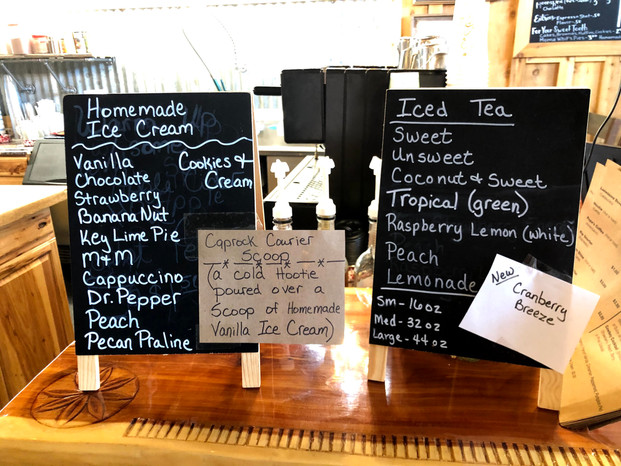 Homemade
Ice Cream
Vanilla
Chocolate
Strawberry
Banana Nut
Key Lime Pie
M&M
Cappuccino
Dr. Pepper
Peach
Pecan Praline
Cookies &
Cream
Caprock Courier
* Scoop *
(a cold Hootie
poured over a
Scoop of Homemade
Vanilla Ice Cream)
Iced Tea
Sweet
Unsweet
Coconut & Sweet
Tropical (green)
Raspberry Lemon (white)
Peach
Lemonade
Sm - 16 oz
Med - 32 oz
Large - 44 oz
New
Cranberry
Breeze
Chocolate
For You Sweet Tooth